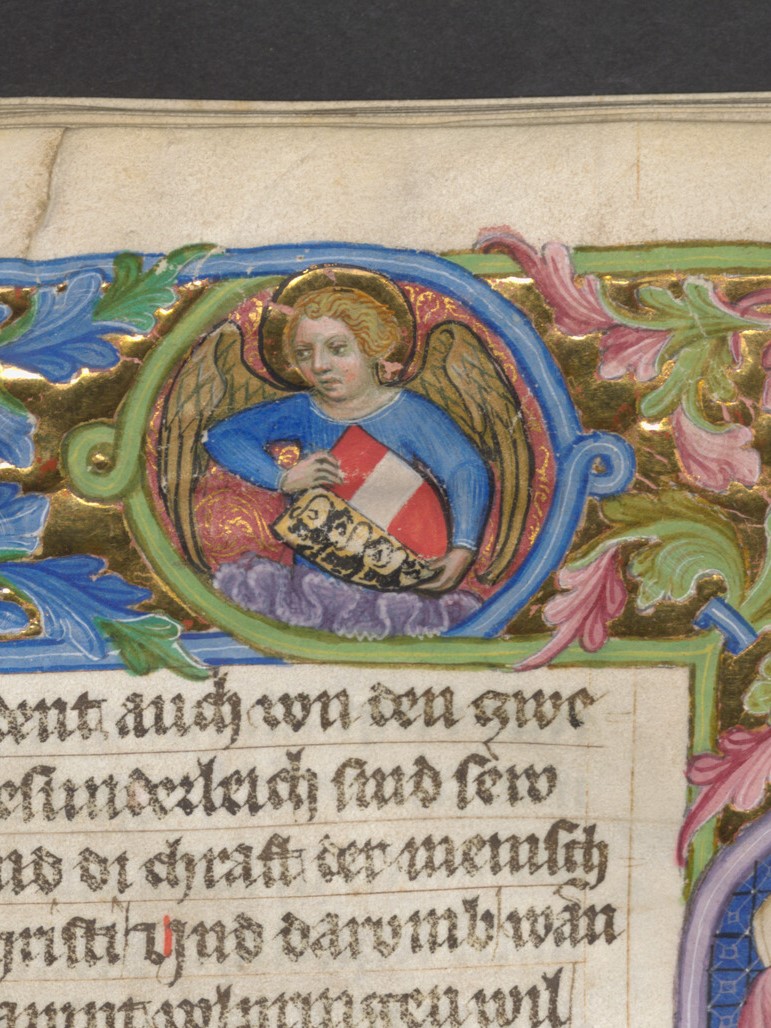 dent auch von den zwe
esunderleich sind sew
nd di chraft der mensch
christi Und darvmb wan